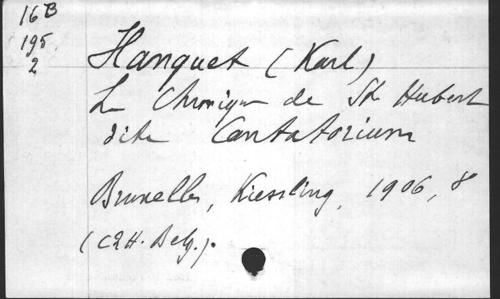 16 B
195
2
Hanquet (Karl)
La Chronique de St Hubert
dite Cantatorium
Bruxelles, Kiessling, 1906, 8
(CRH. Belg.).